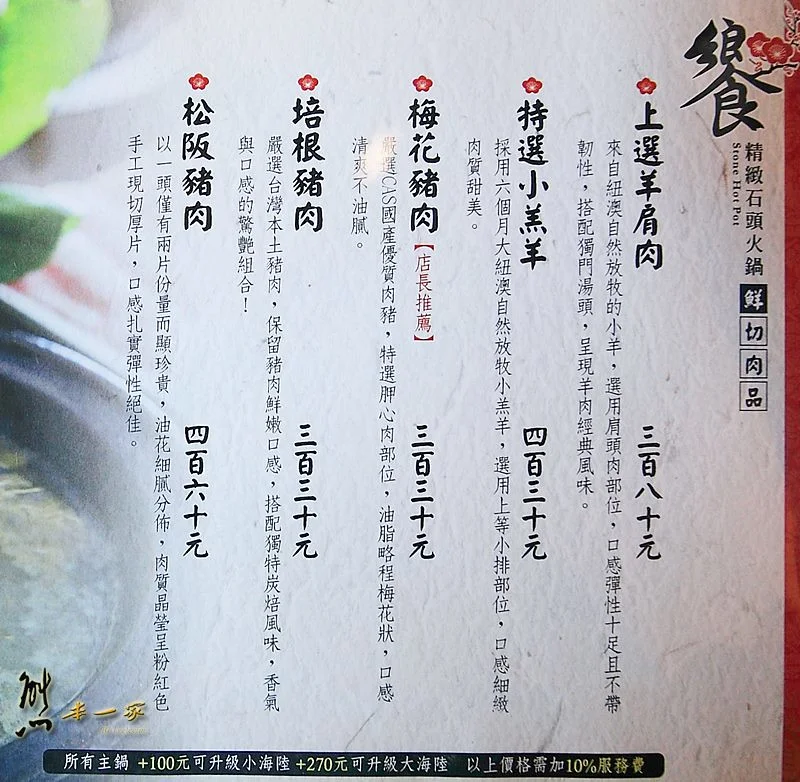 饗
精緻石頭火鍋
Stone Hot Pot
鮮切肉品
上選羊肩肉
三百八十元
來自紐澳自然放牧的小羊，選用肩頭肉部位，口感彈性十足且不帶
韌性，搭配獨門湯頭，呈現羊肉經典風味。
特選小羔羊
四百三十元
採用六個月大紐澳自然放牧小羔羊，選用上等小排部位，口感細緻
肉質甜美。
梅花豬肉【店長推薦】
三百三十元
嚴選CIS國產優質肉豬，特選胛心肉部位，油脂略程梅花狀，口感
清爽不油膩。
培根豬肉
三百三十元
嚴選台灣本土豬肉，保留豬肉鮮嫩口感，搭配獨特炭焙風味，香氣
與口感的驚艷組合！
松阪豬肉
四百六十元
以一頭僅有兩片份量而顯珍貴，油花細膩分佈，肉質晶瑩呈粉紅色
手工現切厚片，口感扎實彈性絕佳。
半一家
所有主鍋 +100元可升級小海陸 +270元可升級大海陸 以上價格需加10%服務費